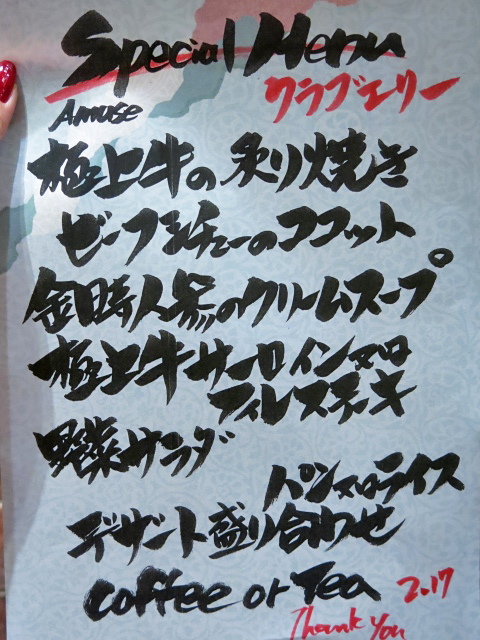 Special Menu
クラブエリー
Amuse
極上牛の炙り焼き
ビーフシチューのココット
金時人参のクリームスープ
極上牛サーロインor
フィレステーキ
野菜サラダ
パンorライス
デザート盛り合わせ
Coffee or Tea
2.17
Thank You